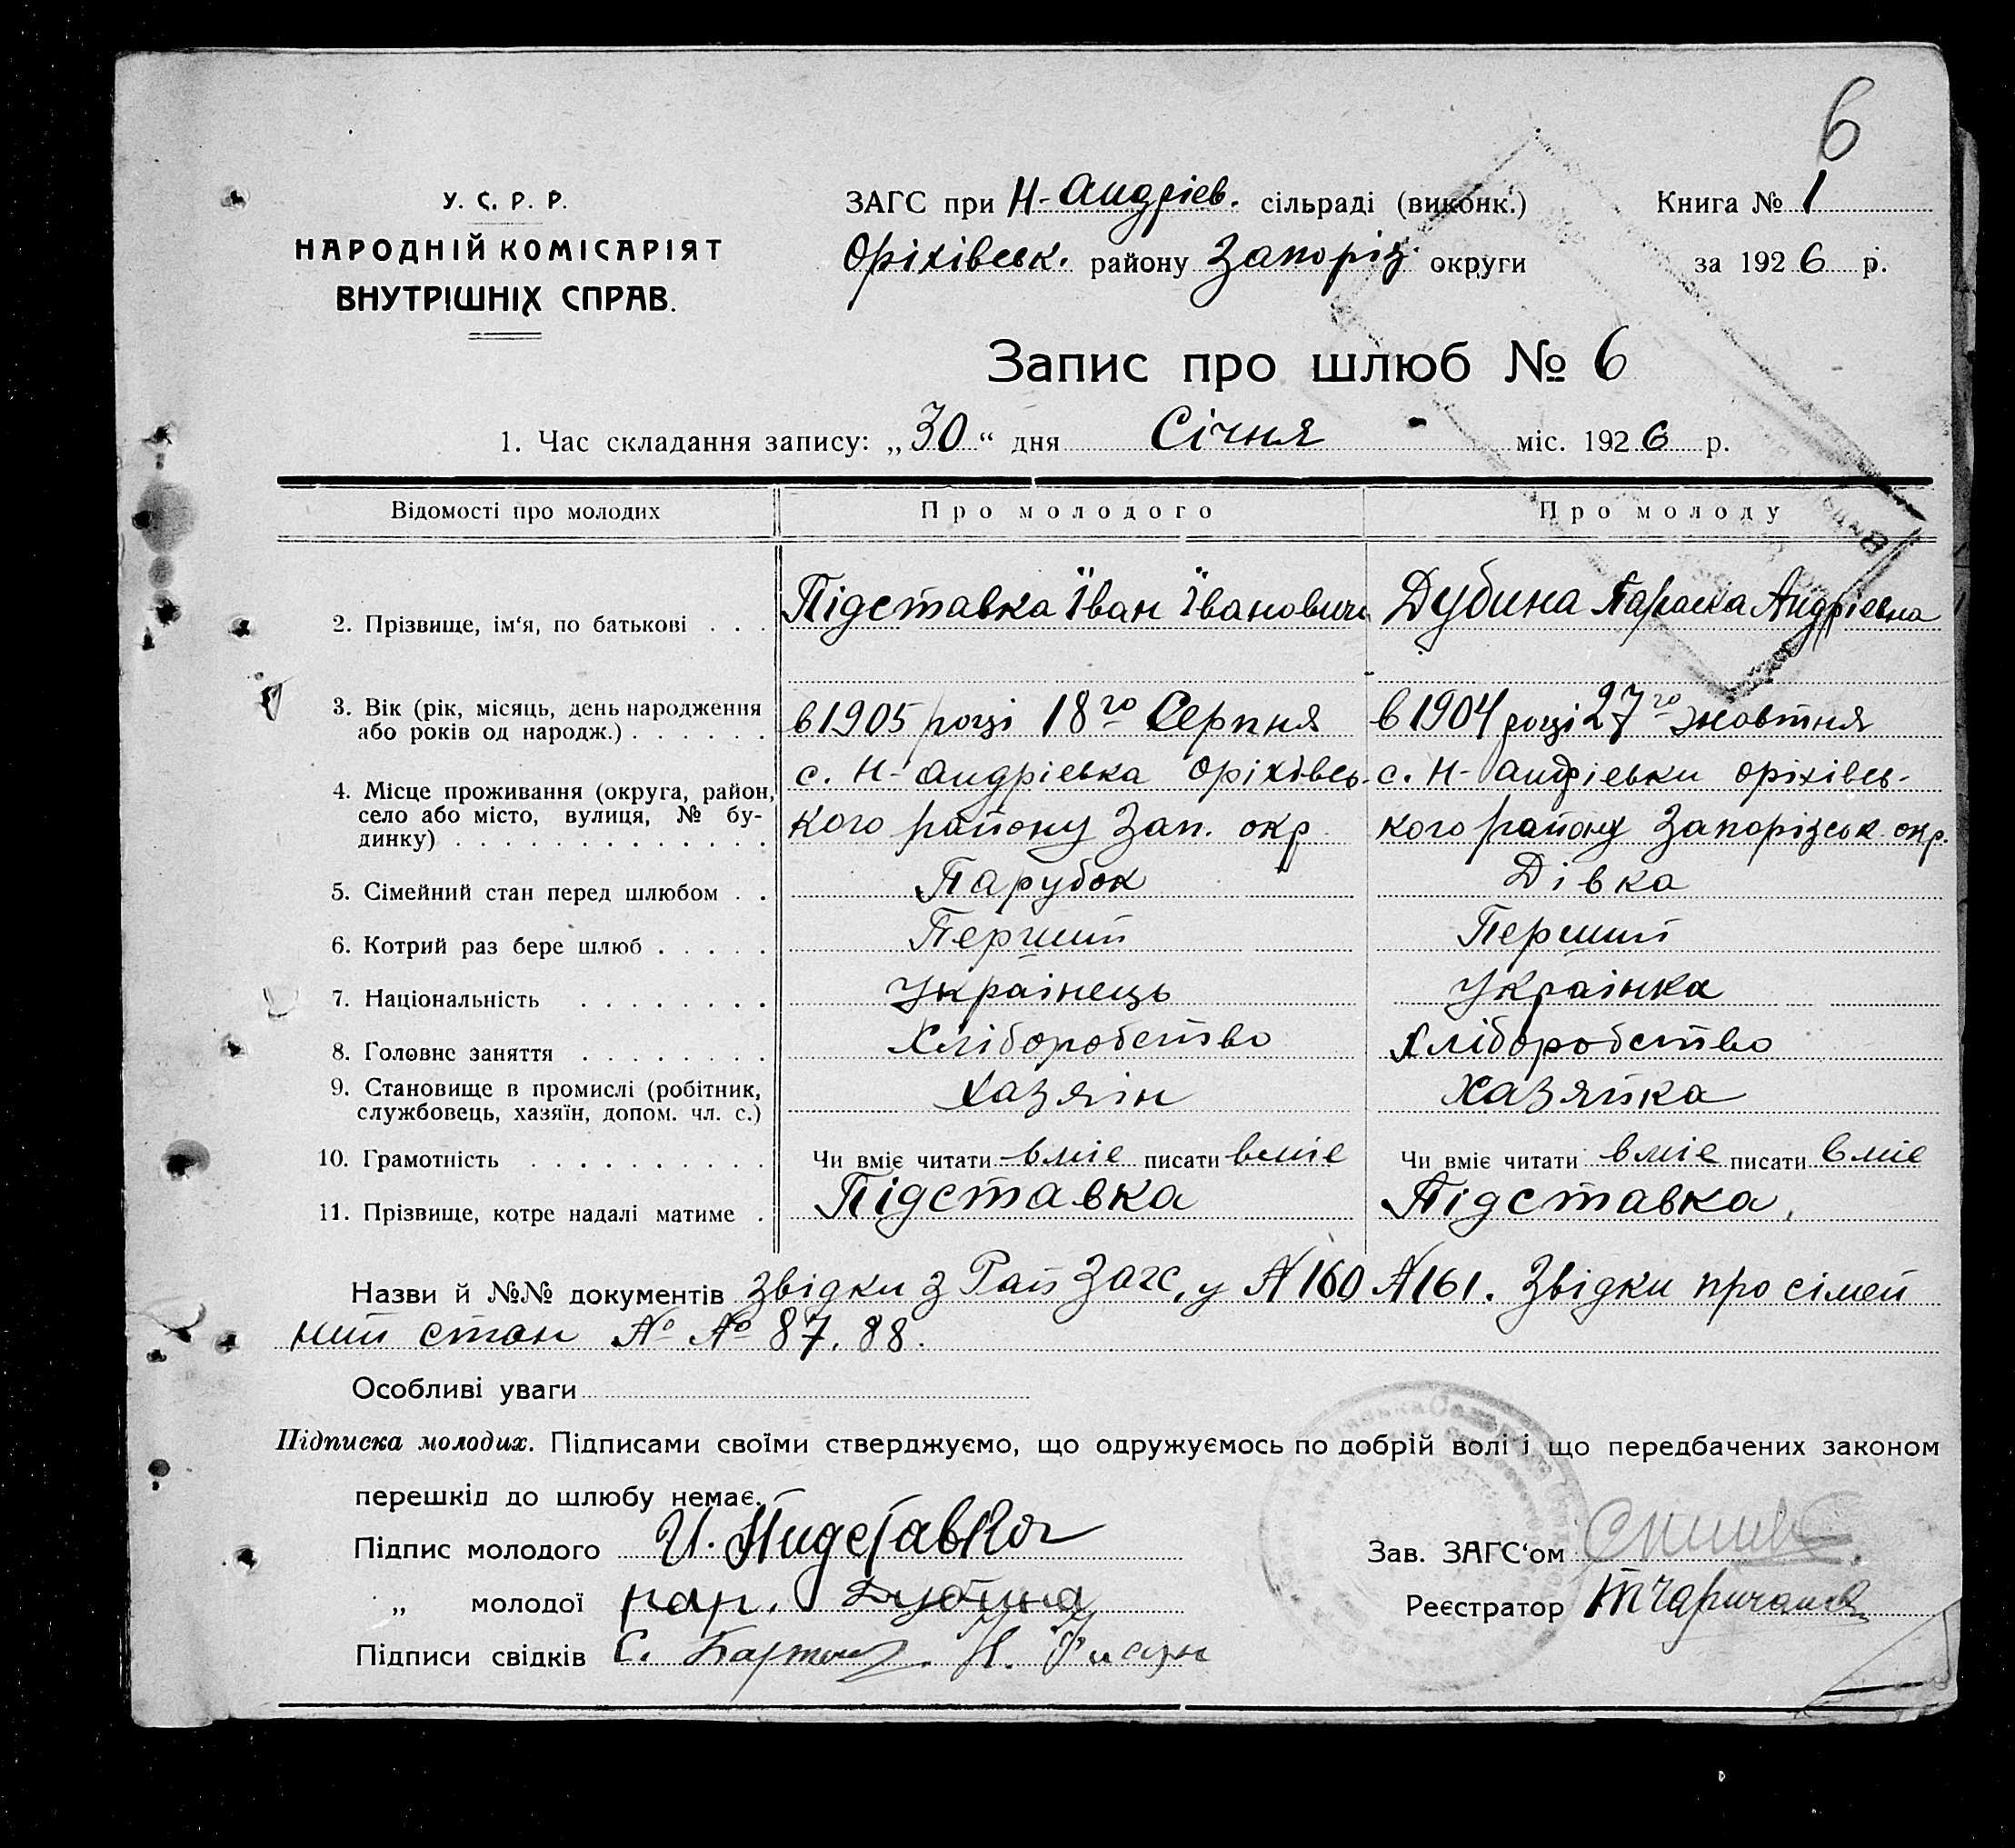 6
У. С. Р. Р.
НАРОДНІЙ КОМІСАРІЯТ
ВНУТРІШНІХ СПРАВ.
ЗАГС при Н-Андріев. сільраді (виконк.)
Оріхівськ. району Запоріз. округи
Книга № 1
за 1926 р.
Запис про шлюб № 6
1. Час складання запису: „30“ дня Січня міс. 1926 р.
Відомості про молодих Про молодого Про молоду
2. Прізвище, ім‘я, по батькові . . . Підставка Їван Їванович Дубина Параска Андріевна
3. Вік (рік, місяць, день народження
або років од народж.) . . . . . . в 1905 році 18го Серпня в 1904 році 27го жовтня
4. Місце проживання (округа, район,
село або місто, вулиця, № бу-
динку) . . . . . . . . . . . . .
с. Н-Андріевка Оріхівсь- с. Н-Андріевки оріхівсь-
кого району Зап. окр. кого району Запорізськ. окр.
5. Сімейний стан перед шлюбом . . Парубок Дівка
6. Котрий раз бере шлюб . . . . . Перший Перший
7. Національність . . . . . . . . Украінець Украінка
8. Головне заняття . . . . . . . . Хліборобство Хліборобство
9. Становище в промислі (робітник,
службовець, хазяїн, допом. чл. с.) Хазяін Хазяйка
10. Грамотність . . . . . . . . . . Чи вміє читати вміе писати вміе Чи вміє читати вміе писати вміе
11. Прізвище, котре надалі матиме . Підставка Підставка.
Назви й №№ документів Звідки з Рай Загс, у № 160 № 161. Звідки про сімей
ний стан № № 87. 88.
Особливі уваги
Підписка молодих. Підписами своїми стверджуємо, що одружуємось по добрій волі і що передбачених законом
перешкід до шлюбу немає.
Підпис молодого И. Пидставка
„ молодої пар. Дубина
Підписи свідків С. Н.
Зав. ЗАГС‘ом
Реєстратор